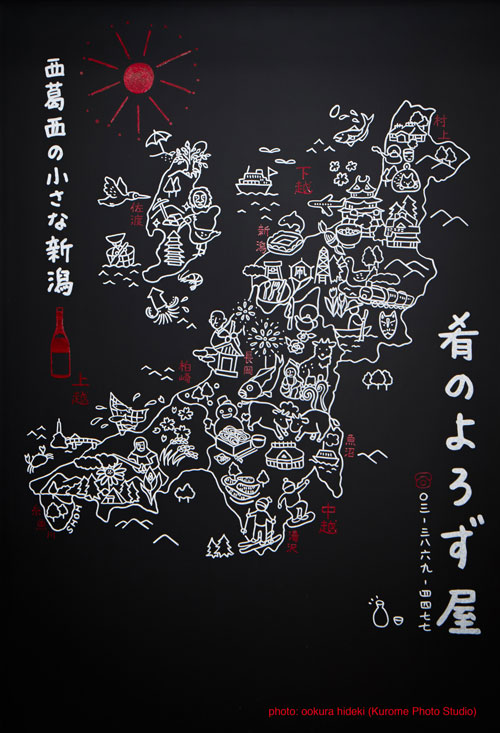 肴のよろず屋
〇三-三八六九-四四七七
西葛西の小さな新潟
村上
下越
佐渡
新潟
長岡
柏崎
上越
魚沼
中越
湯沢
糸魚川
photo: ookura hideki (Kurome Photo Studio)